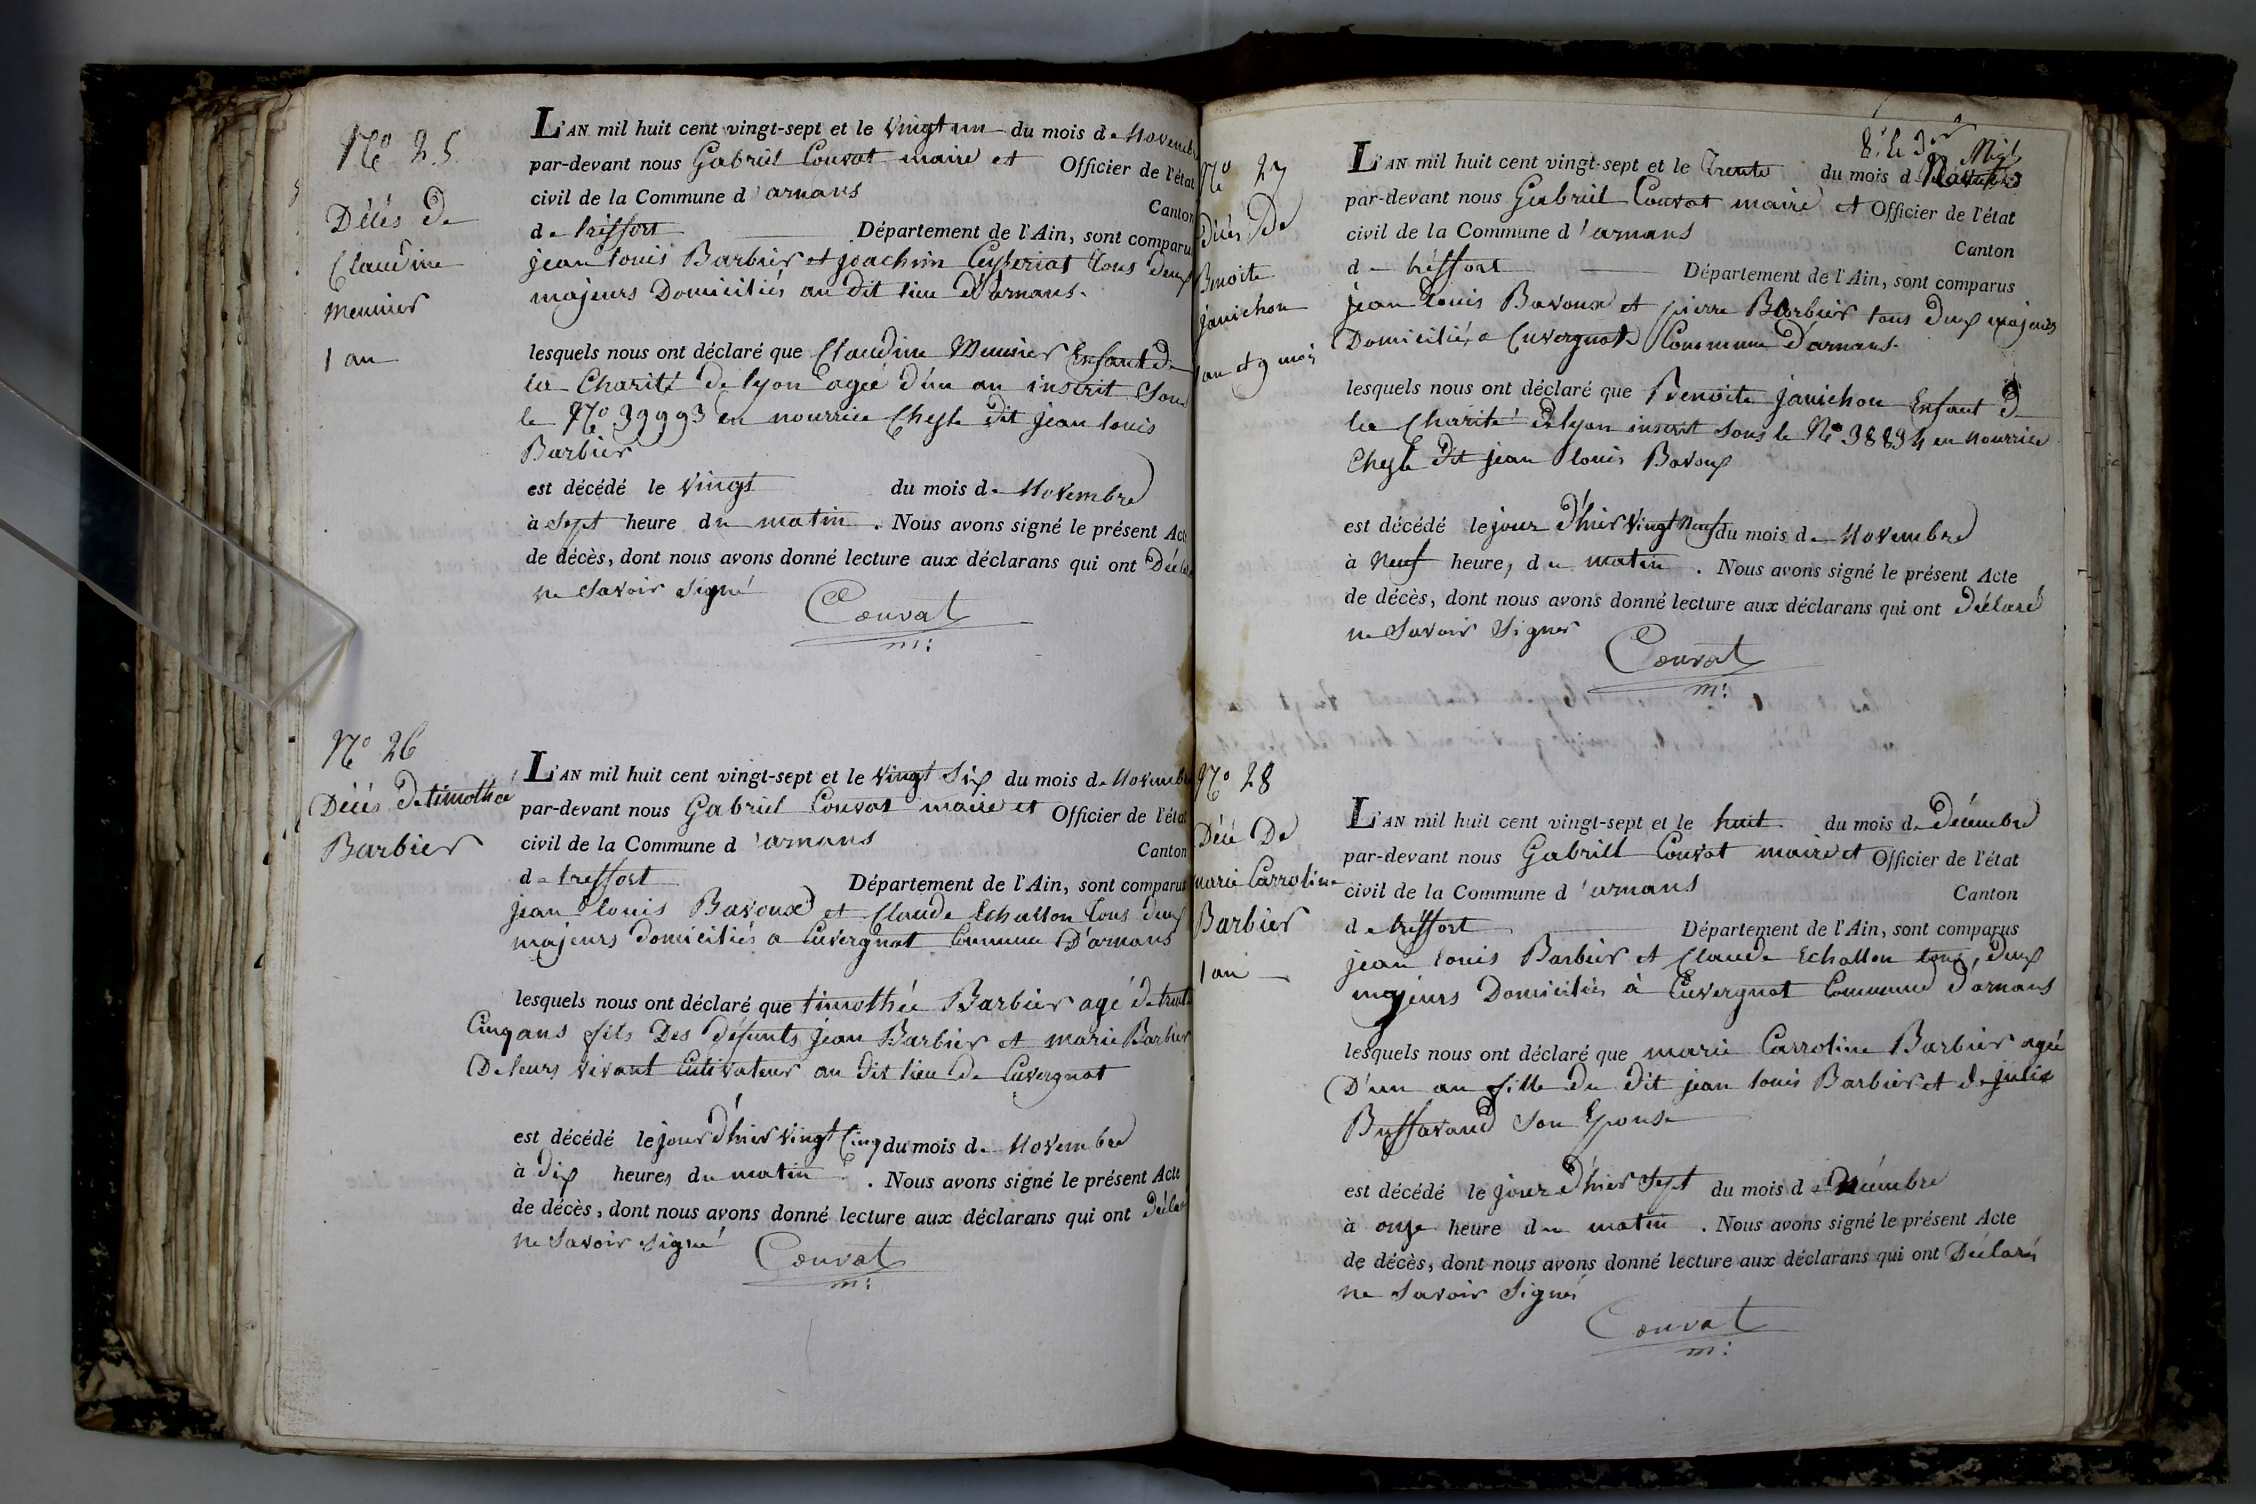 Nº 25
Décés de
Claudine
Meunier
1 an
L'AN mil huit cent vingt-sept et le vingt un du mois de Novembre
par-devant nous Gabriel Convat maire et Officier de l'état
civil de la Commune d'arnans
Canton
de treffort Département de l'Ain, sont comparu
jean louis Barbier et joachim Ceyseriat tous deux
majeurs Domiciliés au dit lieu d'arnans.
lesquels nous ont déclaré que Claudine Meunier Enfant de
la Charité de lyon agée d'un an inscrit sous
le Nº 39993 en nourrice Cheste dit jean louis
Barbier
est décédé le vingt du mois de Novembre
à sept heure du matin. Nous avons signé le présent Acte
de décès, dont nous avons donné lecture aux déclarans qui ont Déclaré
ne savoir signé
Convat
m:
Nº 26
Décés de timothée
Barbier
L'AN mil huit cent vingt-sept et le vingt six du mois de Novembre
par-devant nous Gabriel Convat maire et Officier de l'état
civil de la Commune d'arnans
Canton
de treffort Département de l'Ain, sont comparus
jean louis Bavoux et Claude Echallon tous deux
majeurs domiciliés a Cuvergnat Commune D'arnans
lesquels nous ont déclaré que timothée Barbier agé de trente
Cinq ans fils Des défunts jean Barbier et marie Barbier
De leurs vivant Cultivateur au dit lieu de Cuvergnat
est décédé le jour d'hier vingt Cinq du mois de Novembre
à dix heures du matin. Nous avons signé le présent Acte
de décès, dont nous avons donné lecture aux déclarans qui ont Déclaré
ne savoir signé
Convat
m:
Nº 27
Décés De
Benoite
janichon
1 an et 9 mois
L'AN mil huit cent vingt-sept et le Trente du mois de Novembre
par-devant nous Gabriel Convat maire et Officier de l'état
civil de la Commune d'arnans
Canton
de tréffort Département de l'Ain, sont comparus
jean louis Bavoux et pierre Barbier tous deux majeurs
Domiciliés a Cuvergnat Commune d'arnans.
lesquels nous ont déclaré que Benoite janichon Enfant de
la Charité de lyon inscrit sous le Nº 38834 en Nourrice
Cheste dit jean louis Bavoux
est décédé le jour d'hier vingt Neuf du mois de Novembre
à Neuf heure, du matin. Nous avons signé le présent Acte
de décès, dont nous avons donné lecture aux déclarans qui ont déclaré
ne Savoir Signer
Convat
m:
Nº 28
Décé De
marie Carroline
Barbier
1 an
L'AN mil huit cent vingt-sept et le huit du mois de décembre
par-devant nous Gabriel Convat maire et Officier de l'état
civil de la Commune d'arnans
Canton
de tréffort Département de l'Ain, sont comparus
jean louis Barbier et Claude Echallon tous, deux
majeurs Domiciliés à Cuvergnat Commune d'arnans
lesquels nous ont déclaré que marie Carroline Barbier agée
D'un an fille du dit jean louis Barbier et de julie
Buffavand Son Epouse
est décédé le jour d'hier sept du mois de Décembre
à onze heure du matin. Nous avons signé le présent Acte
de décès, dont nous avons donné lecture aux déclarans qui ont Déclaré
ne Savoir Signer
Convat
m: